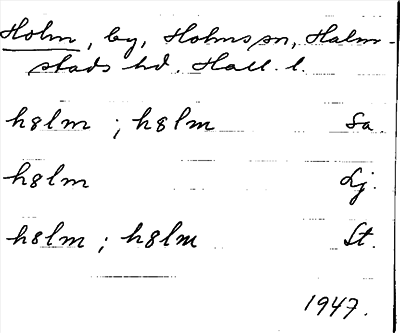 Holm, by, Holms sn, Halm-
stads hd. Hall. l.
hɞlm ; hɞlm Sa.
hɞlm Lj.
hɞlm ; hɞlm St.
1947.